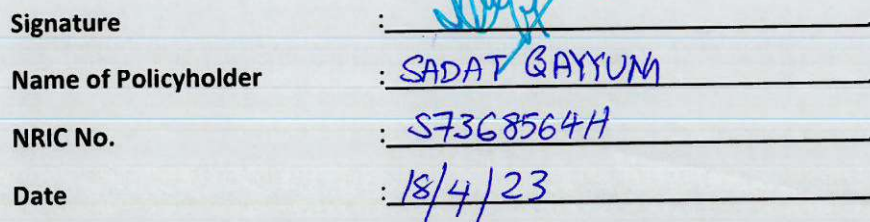 Signature :
Name of Policyholder : SADAT QAYYUM
NRIC No. : S7368564H
Date : 18/4/23